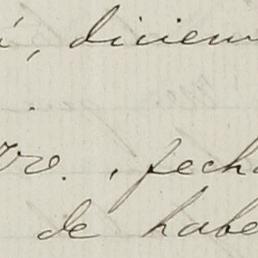 í, diciem
Dro., fecha
de habe